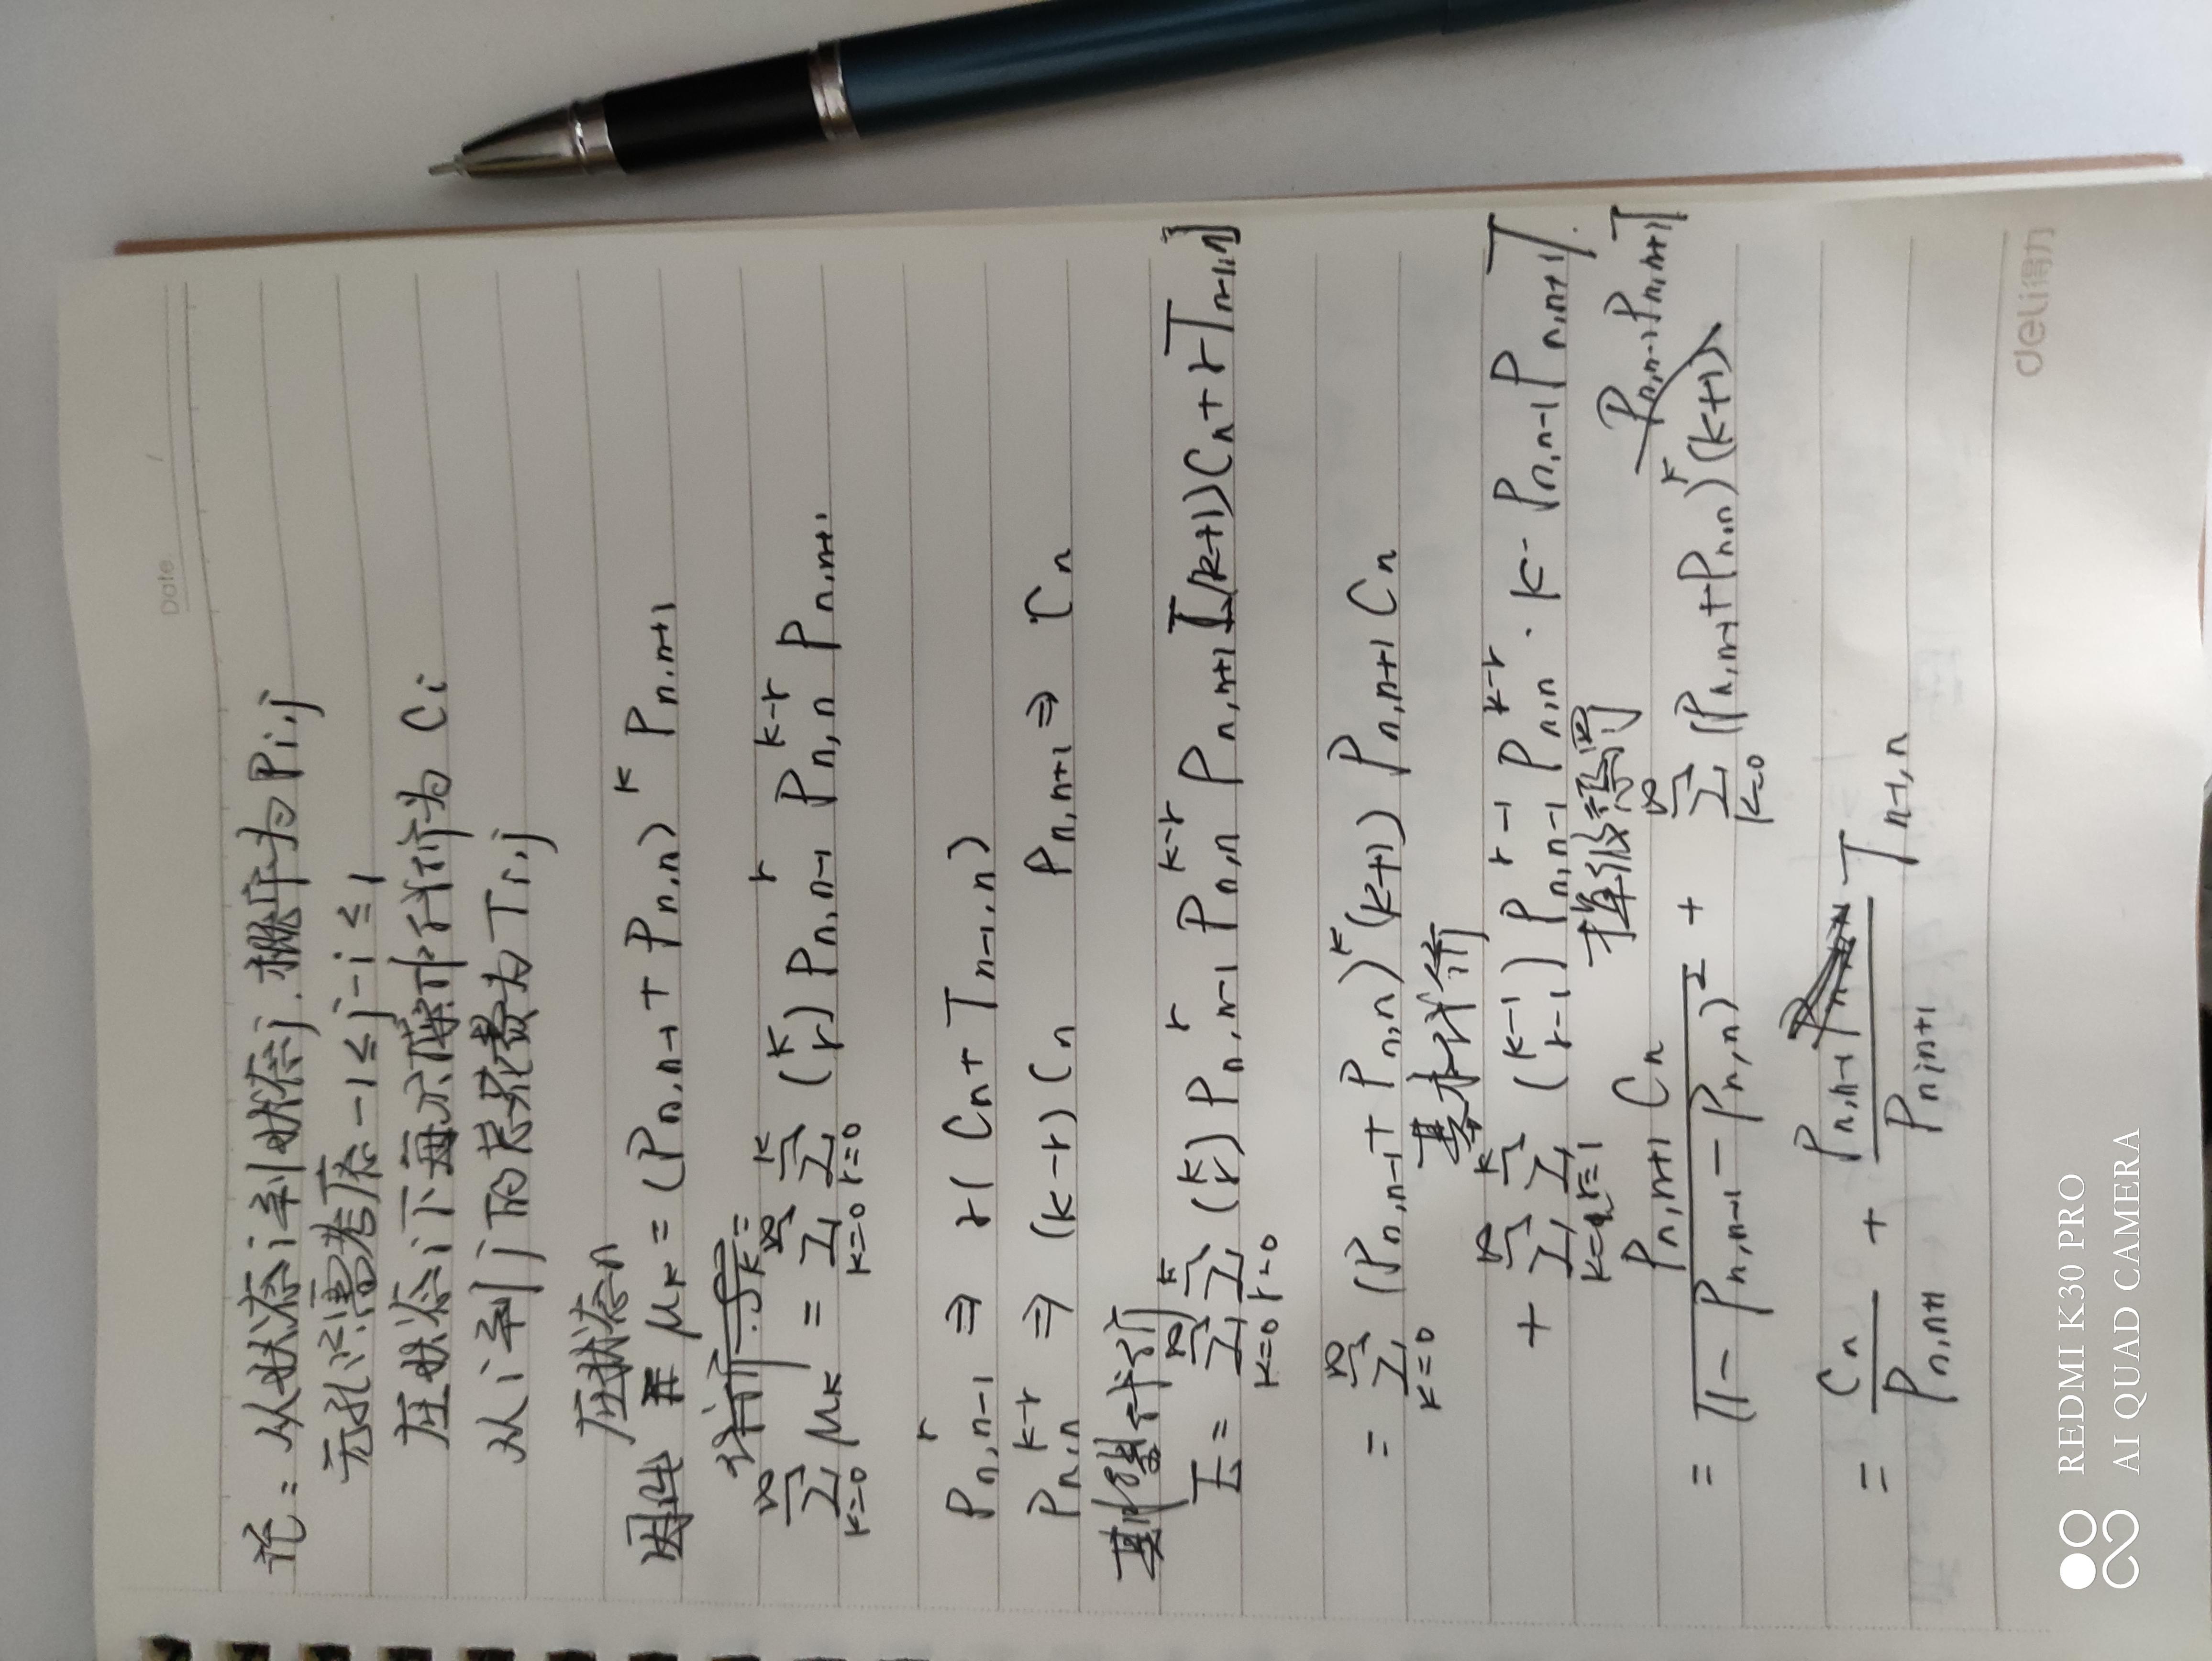 Date /
记：从状态i到状态j.概率为Pi,j
无需考虑-1≤j-i≤1
在状态i下每次操作代价为Ci
从i到j的总花费为Ti,j
在状态n
因此 μ_k = (P_{n,n-1} + P_{n,n})^k P_{n,n+1}
∑_{k=0}^∞ μ_k = ∑_{k=0}^∞ ∑_{r=0}^k (k r) P_{n,n-1}^r P_{n,n}^{k-r} P_{n,n+1}
P_{n,n-1}^r ⇒ r(C_n + T_{n-1,n})
P_{n,n}^{k-r} ⇒ (k-r)C_n P_{n,n+1} ⇒ C_n
则总代价
E = ∑_{k=0}^∞ ∑_{r=0}^k (k r) P_{n,n-1}^r P_{n,n}^{k-r} P_{n,n+1} [(k+1)C_n + rT_{n-1,n}]
= ∑_{k=0}^∞ (P_{n,n-1} + P_{n,n})^k (k+1) P_{n,n+1} C_n
基本代价
+ ∑_{k=1}^∞ ∑_{r=1}^k (k-1 r-1) P_{n,n-1}^{r-1} P_{n,n}^{k-r} · k · P_{n,n-1} P_{n,n+1} T.
掉级惩罚 P_{n,n-1} P_{n,n+1} T
= P_{n,n+1} C_n / (1 - P_{n,n-1} - P_{n,n})^2 + ∑_{k=0}^∞ (P_{n,n-1} + P_{n,n})^k (k+1)
= C_n / P_{n,n+1} + P_{n,n-1} / P_{n,n+1} T_{n-1,n}
deli得力
REDMI K30 PRO
AI QUAD CAMERA